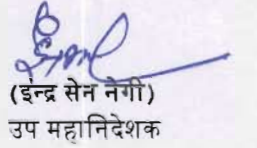 (इन्द्र सेन नेगी)
उप महानिदेशक